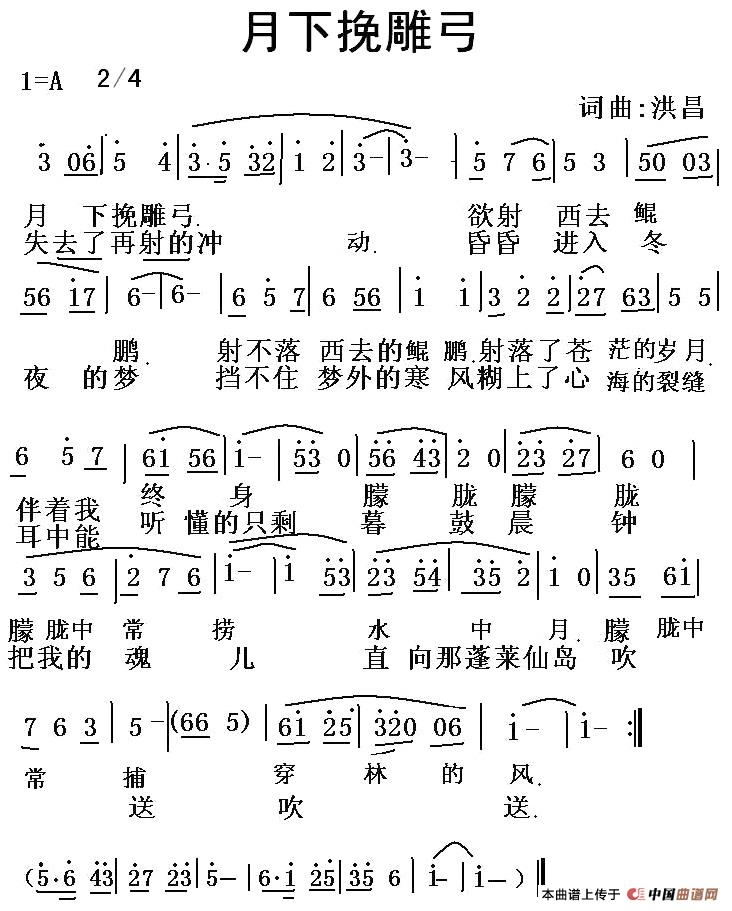 月下挽雕弓
1=A 2/4
词曲:洪昌
3 06 5 4 3·5 32 1 2 3- 3- - 5 7 6 5 3 50 03
月 下挽雕弓. 欲射 西去 鲲
失去了再射的冲 动. 昏昏 进入 冬
56 17 6- 6- 6 5 7 6 56 1 1 3 2 2 27 63 5 5
鹏. 射不落 西去的鲲 鹏.射落了苍 茫的岁月.
夜 的梦 挡不住 梦外的寒 风糊上了心 海的裂缝
6 5 7 61 56 1- 53 0 56 43 2 0 23 27 6 0
伴着我 终 身 朦 胧 朦 胧
耳中能 听 懂的只剩 暮 鼓 晨 钟
3 5 6 2 7 6 1- 1 53 23 54 35 2 1 0 35 61
朦 胧中 常 捞 水 中 月.朦 胧中
把我的 魂 儿 直 向那蓬莱仙岛 吹
7 6 3 5-(66 5) 61 25 320 06 1- 1- :
常 捕 穿 林 的 风.
送 吹 送.
(5·6 43 27 23 5- 6·1 23 35 6 1- 1-)
本曲谱上传于 中国曲谱网